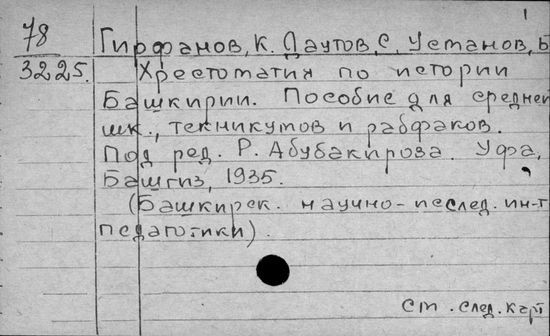 1
78
3225.
Гирфанов, К. Даутов, С. Усманов, Б
Хрестоматия по истории
Башкирии. Пособие для средней
шк., техникумов и рабфаков.
Под ред. Р. Абубакирова. Уфа,
Башгиз, 1935.
(Башкирск. научно-исслед. ин-т
педагогики).
см. след. карт